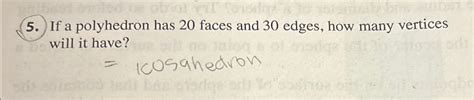 5. If a polyhedron has 20 faces and 30 edges, how many vertices
will it have?
= icosahedron